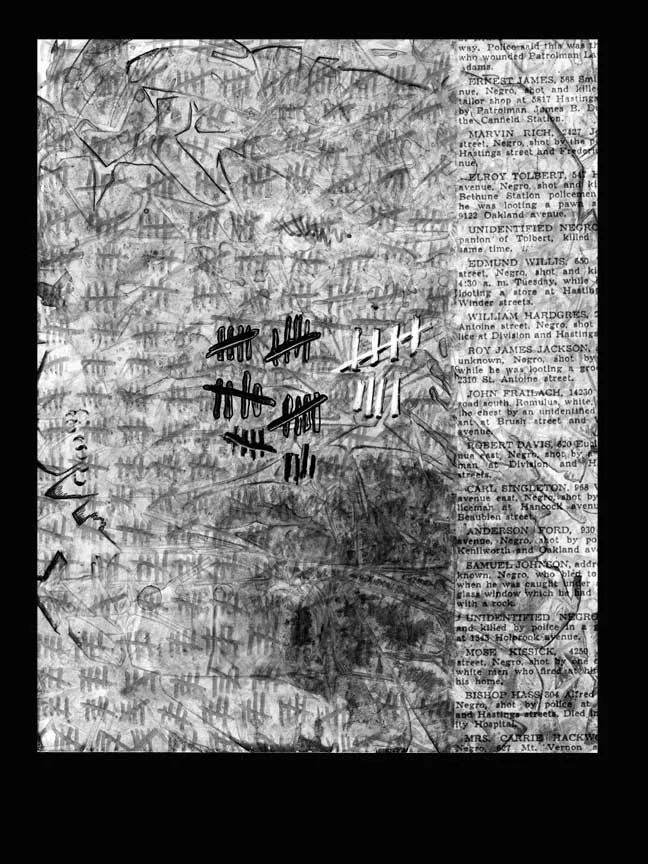 way. Police said this was th
who wounded Patrolman La
adams.
ERNEST JAMES, 568 Smi
nue, Negro, shot and kille
tailor shop at 5817 Hastings
by Patrolman James B. Du
the Canfield Station.
MARVIN RICH, 2427 J
street, Negro, shot by the p
Hastings street and Frederi
nue.
ELROY TOLBERT, 547 H
avenue, Negro, shot and ki
Bethune Station policemen
he was looting a pawn s
9122 Oakland avenue.
UNIDENTIFIED NEGRO
panion of Tolbert, killed
same time.
EDMUND WILLIS, 650
street, Negro, shot and ki
4:30 a. m. Tuesday, while
looting a store at Hasting
Winder streets.
WILLIAM HARDGRES, 2
Antoine street, Negro, shot
lice at Division and Hastings
ROY JAMES JACKSON,
unknown, Negro, shot by
while he was looting a gro
2310 St. Antoine street.
JOHN FRAILACH, 14230
road south, Romulus, white,
the chest by an unidentified
ant at Brush street and
avenue.
ROBERT DAVIS, 620 Eupl
nue east, Negro, shot by a
man at Division and H
streets.
CARL SINGLETON, 968 V
avenue east, Negro, shot by
liceman at Hancock avenu
Beaubien street.
ANDERSON FORD, 930
avenue, Negro, shot by po
Kenilworth and Oakland av
SAMUEL JOHNSON, addr
known, Negro, who bled to
when he was caught under
glass window which he had
with a rock.
UNIDENTIFIED NEGRO
and killed by police in a
at 1343 Holbrook avenue.
MOSE KISSICK, 4250
street, Negro, shot by one o
white men who fired at him
his home.
BISHOP HASS, 504 Alfred
Negro, shot by police at
and Hastings streets. Died in
ity Hospital.
MRS. CARRIE HACKWO
Negro, 627 Mt. Vernon a